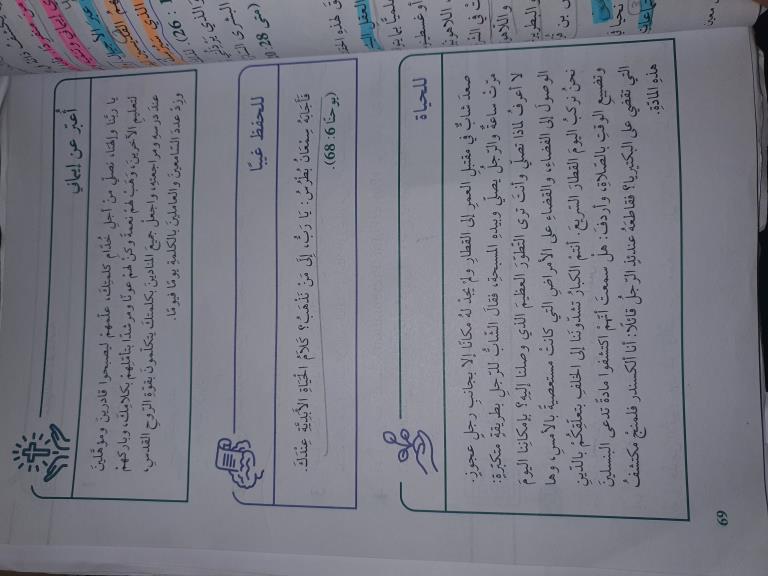 أعبّر عن إيماني
يا ربّنا وإلهنا، نصلّي من أجلِ خُدّامِ كلمتِكَ، علّمهمْ ليصبحوا قادرينَ ومؤهّلينَ
لتعليمِ الآخرينَ، وهَبْ لهمْ نعمةً وكنْ لهم عونًا ومرشدًا بتأمّلِهمْ بكلامِكَ، وباركهمْ
عندَ درسِهِ ومراجعتِهِ، واجعلْ جميعَ المنادينَ بكلمتِكَ يتكلّمونَ بقوّةِ الرّوحِ القدسِ،
وزِدْ عددَ السّامعينَ والعاملينَ بالكلمةِ يومًا فيومًا.
للحفظ غيبًا
فَأَجَابَهُ سِمْعَانُ بُطْرُسُ: يَا رَبُّ، إِلَى مَنْ نَذْهَبُ؟ كَلَامُ الحَيَاةِ الأَبَدِيَّةِ عِنْدَكَ.
(يوحنّا 6: 68).
للحياة
صعدَ شابٌّ في مقتبلِ العمرِ إلى القطارِ ولمْ يجدْ لهُ مكانًا إلّا بجانبِ رجلٍ عجوزٍ.
مرّتْ ساعةٌ والرّجلُ يصلّي وبيدِهِ المسبحةُ، فقالَ الشّابُّ للرّجلِ بطريقةٍ متكبّرةٍ:
لا أعرفُ لماذا تصلّي وأنتَ ترى التّطوّرَ العظيمَ الذي وصلْنا إليهِ؟ بإمكانِنا اليومَ
الوصولُ إلى الفضاءِ، والقضاءُ على الأمراضِ التي كانتْ مستعصيةً بالأمسِ، وها
نحنُ نركبُ اليومَ القطارَ السّريعَ. أنتمُ الكبارُ تشدّونَنا إلى الخلفِ بتعلّقِكُمْ بالدّينِ
وتضييعِ الوقتِ بالصّلاةِ، وأردفَ: هلْ سمعتَ أنّهمْ اكتشفُوا مادةً تُدعى البنسلين
التي تقضي على البكتيريا؟ فقاطعَهُ عندئذٍ الرّجلُ قائلًا: أنا ألكسندر فلمنج مكتشفُ
هذهِ المادّةِ.
69